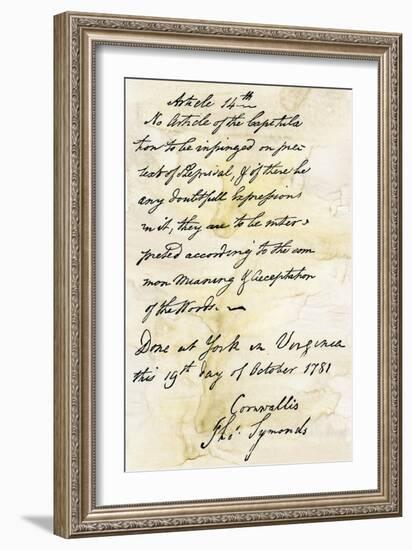 Article 14th
No Article of the Capitula
tion to be infringed on pre
text of Reprisal, & if there be
any doubtfull Expressions
in it, they are to be inter
preted according to the com
mon Meaning & Acceptation
of the Words.
Done at York in Virginia
this 19th day of October 1781
Cornwallis
Tho.s Symonds